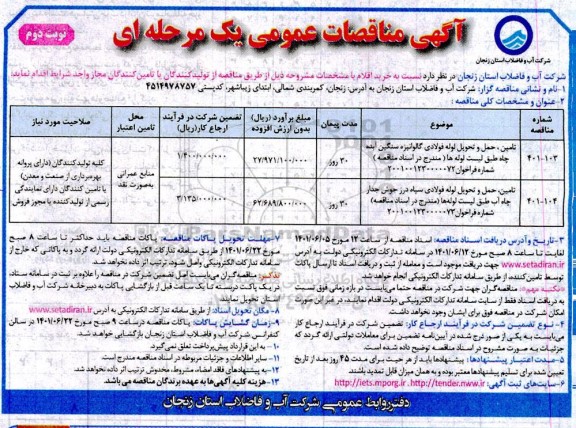 آگهی مناقصات عمومی یک مرحله ای
نوبت دوم
شرکت آب و فاضلاب استان زنجان
شرکت آب و فاضلاب استان زنجان در نظر دارد نسبت به خرید اقلام با مشخصات مشروحه ذیل از طریق مناقصه از تولیدکنندگان یا تامین‌کنندگان مجاز واجد شرایط اقدام نماید:
۱-نام و نشانی مناقصه گزار: شرکت آب و فاضلاب استان زنجان به آدرس: زنجان، کمربندی شمالی، ابتدای زیباشهر، کدپستی ۴۵۱۴۹۷۸۷۵۷
۲-عنوان و مشخصات کلی مناقصه :
شماره مناقصه
موضوع
مدت پیمان
مبلغ برآورد (ریال) بدون ارزش افزوده
تضمین شرکت در فرآیند ارجاع کار(ریال)
محل تامین اعتبار
صلاحیت مورد نیاز
۴۰۱-۱۰۳
تامین، حمل و تحویل لوله فولادی گالوانیزه سنگین آبده
چاه طبق لیست لوله ها ( مندرج در اسناد مناقصه )
شماره فراخوان
۳۰ روز
۲۷/۹۷۱/۱۰۰/۰۰۰
۱/۴۰۰/۰۰۰/۰۰۰
۴۰۱-۱۰۴
تامین، حمل و تحویل لوله فولادی سیاه درز جوش جدار
چاه آب طبق لیست لوله‌ها (مندرج در اسناد مناقصه)
شماره فراخوان
۳۰ روز
۶۲/۶۸۹/۸۰۰/۰۰۰
۳/۱۳۵/۰۰۰/۰۰۰
منابع عمرانی به‌صورت نقد
کلیه تولیدکنندگان (دارای پروانه
بهره‌برداری از صنعت و معدن)
یا تامین کنندگان دارای نمایندگی
رسمی از تولیدکننده یا مجوز فروش
۳-تاریخ و آدرس دریافت اسناد مناقصه: اسناد مناقصه از ساعت ۱۲ مورخ ۱۴۰۱/۰۶/۰۵
لغایت تا ساعت ۸ صبح مورخ ۱۴۰۱/۰۶/۱۲ در سامانه تدارکات الکترونیکی دولت به آدرس
www.setadiran.ir جهت دریافت موجود است و معامله از ثبت و دریافت اسناد تا ارسال پاکات
توسط تامین‌کننده، از طریق سامانه تدارکات الکترونیکی انجام خواهد شد.
«نکته مهم»: مناقصه‌گران جهت شرکت در مناقصه حتما می‌بایست در بازه زمانی فوق نسبت
به دریافت اسناد فقط از سایت سامانه تدارکات الکترونیکی دولت اقدام نمایند، در غیر این صورت
امکان شرکت در مناقصه فوق برای ایشان وجود نخواهد داشت.
۴- نوع تضمین شرکت در فرآیند ارجاع کار: تضمین شرکت در فرآیند ارجاع کار
می‌بایست به یکی از صور درج شده در آیین‌نامه تضمین برای معاملات دولتی ارائه گردد که
جزئیات به صورت مشروح در اسناد مناقصه توضیح داده شده است.
۵-مدت اعتبار پیشنهادها: پیشنهادها باید از هر حیث برای مدت ۴۵ روز بعد از تاریخ
تعیین شده برای تسلیم پیشنهادها معتبر بوده و به همان میزان قابل تمدید باشند.
۶-سایت‌های ثبت آگهی: http://iets.mporg.ir ، http://tender.nww.ir
۷-مهلت تحویل پاکات مناقصه: پاکات مناقصه باید حداکثر تا ساعت ۸ صبح
مورخ ۱۴۰۱/۰۶/۲۲ از طریق سامانه تدارکات الکترونیکی دولت ارائه گردد و به پاکاتی که خارج از
تدارکات الکترونیکی واصل شود، ترتیب اثر داده نخواهد شد.
تذکر: مناقصه‌گران می‌بایست اصل تضمین شرکت در مناقصه را علاوه بر ثبت در سامانه ستاد،
در یک پاکت دربسته تا یک ساعت قبل از بازگشایی پاکات به دبیرخانه شرکت آب و فاضلاب
استان تحویل نمایند.
۸- مکان تحویل اسناد: از طریق سامانه تدارکات الکترونیکی به آدرس www.setadiran.ir
۹- زمان گشایش پاکات: پاکات مناقصه در ساعت ۹ صبح مورخ ۱۴۰۱/۰۶/۲۲ در سالن
کنفرانس شرکت آب و فاضلاب استان زنجان بازگشایی خواهد شد.
۱۰- به این قرارداد پیش‌پرداخت تعلق نمی‌گیرد.
۱۱- سایر اطلاعات و جزئیات مربوطه در اسناد مناقصه مندرج است.
۱۲- به پیشنهادهای فاقد امضاء، مشروط، مخدوش ترتیب اثر داده نخواهد شد.
۱۳- هزینه کلیه آگهی‌ها به عهده برندگان مناقصه می باشد.
دفتر روابط عمومی شرکت آب و فاضلاب استان زنجان